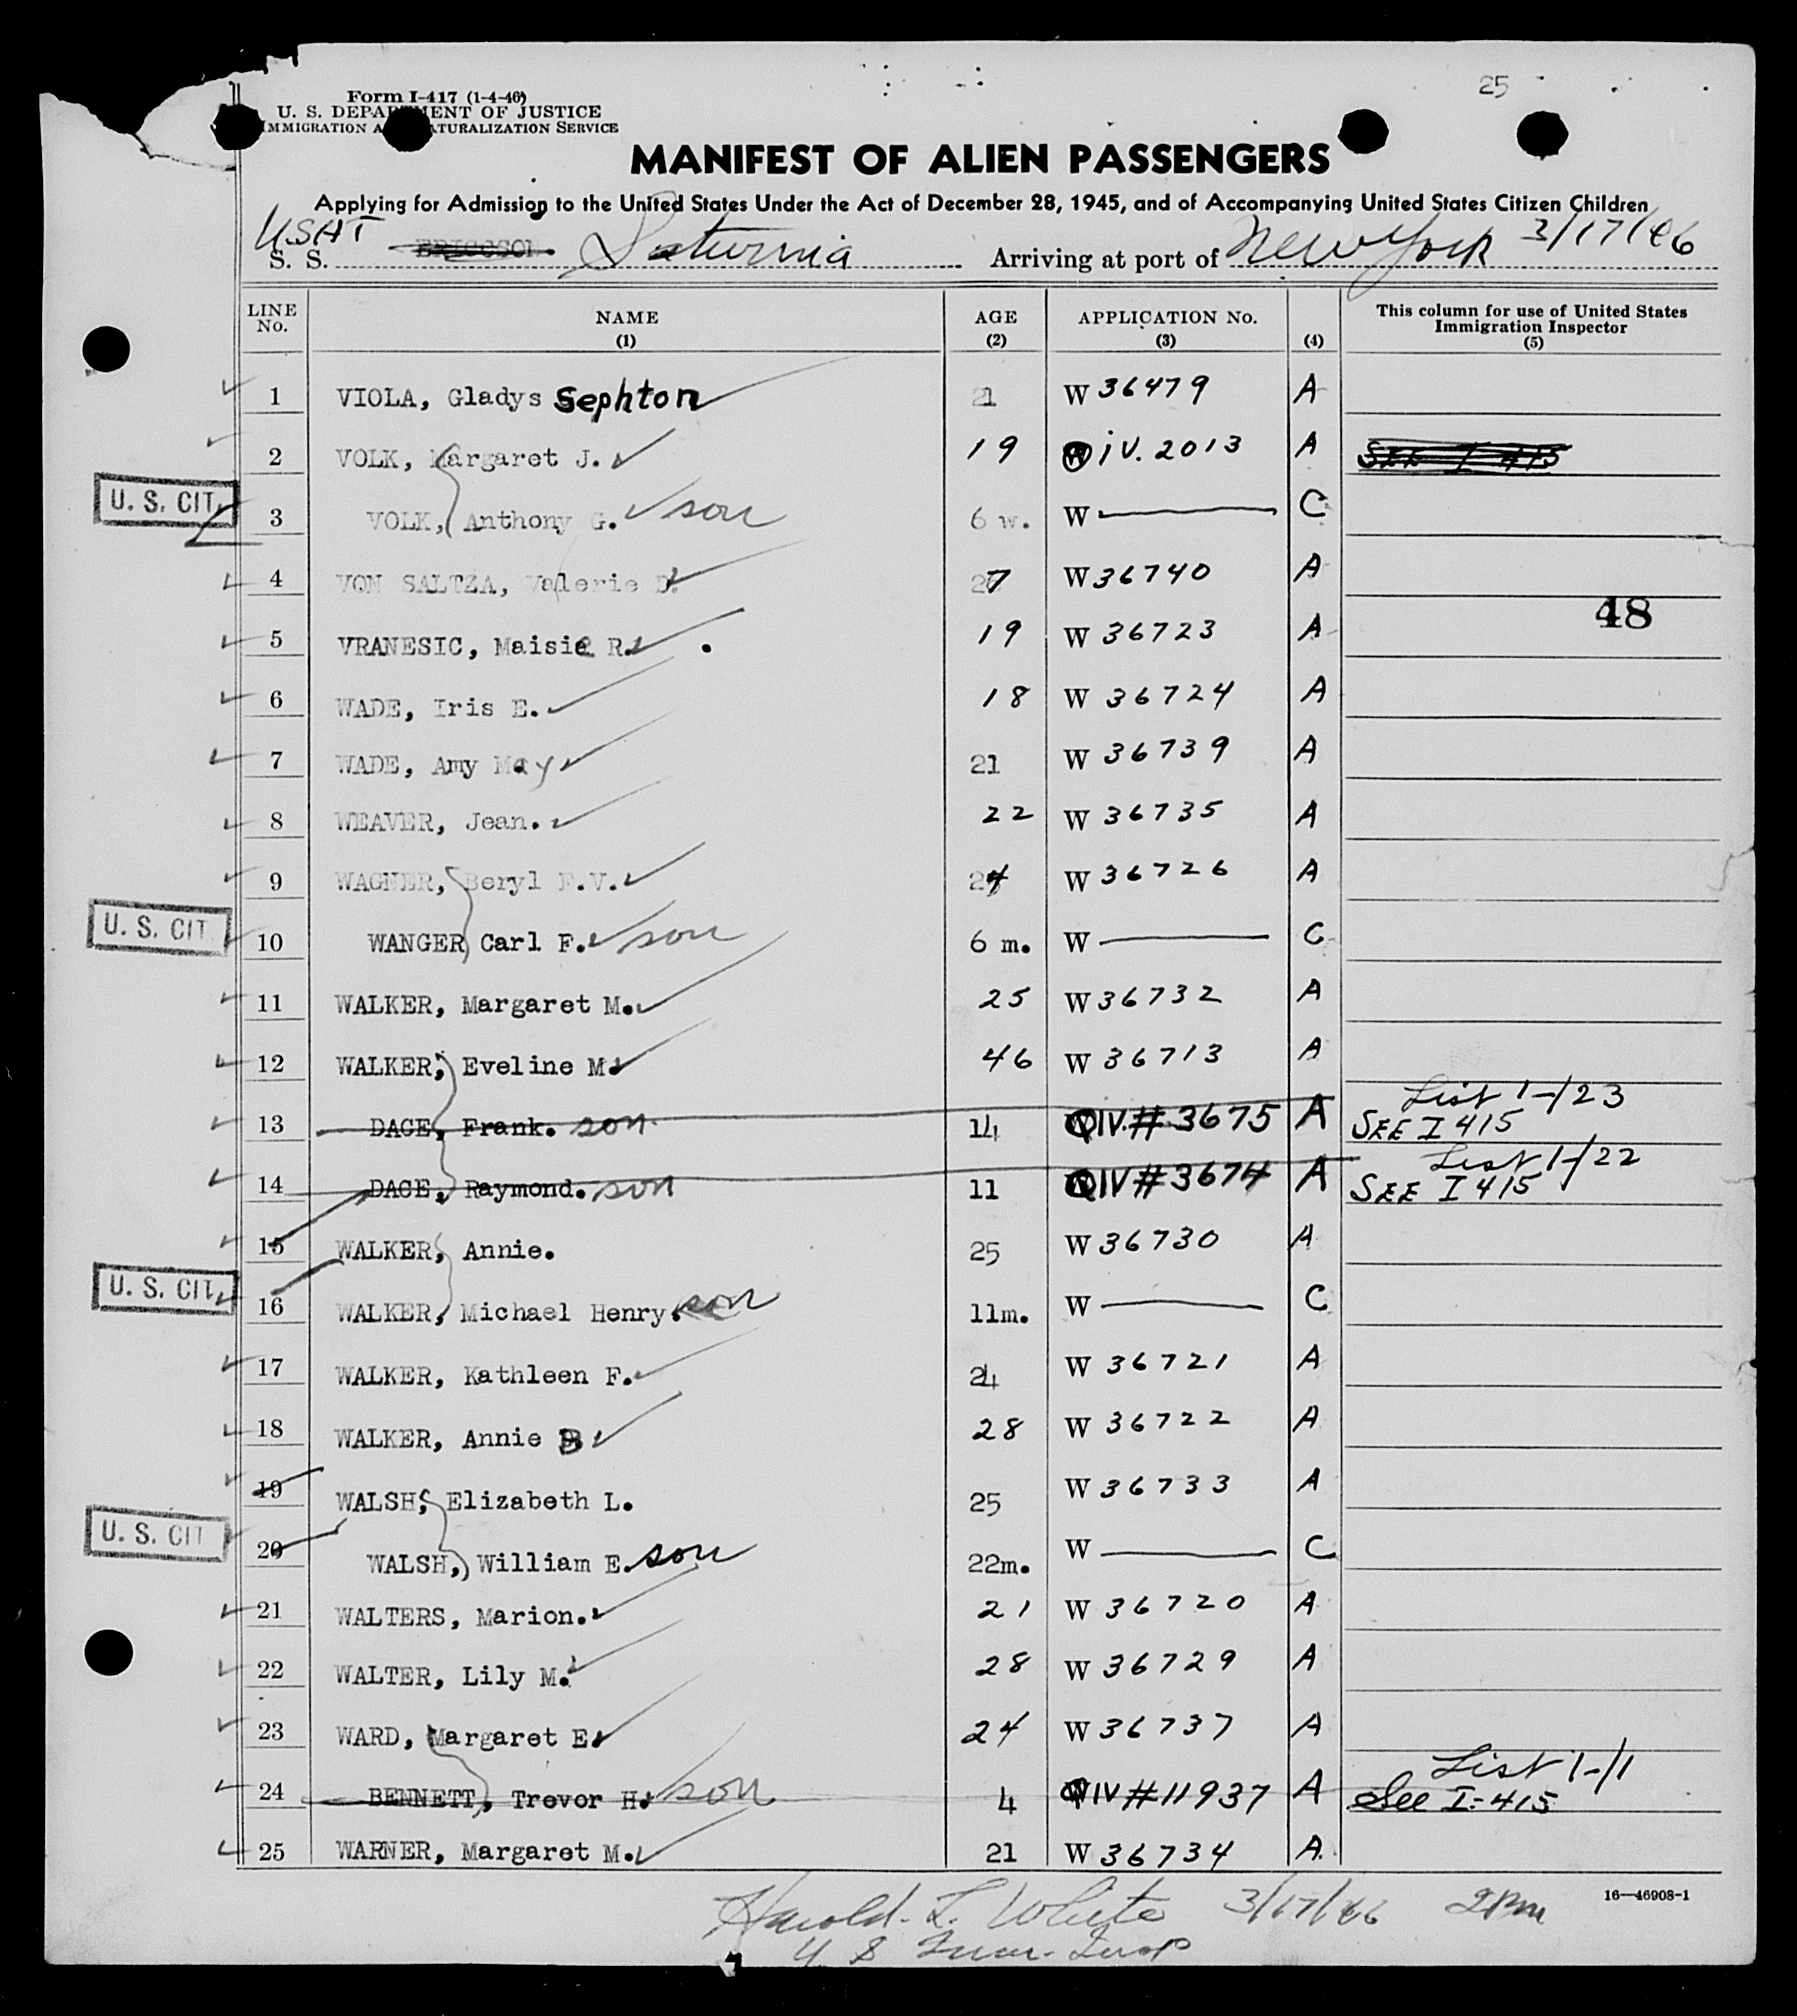 25
Form I-417 (1-4-46)
U. S. DEPARTMENT OF JUSTICE
IMMIGRATION AND NATURALIZATION SERVICE
MANIFEST OF ALIEN PASSENGERS
Applying for Admission to the United States Under the Act of December 28, 1945, and of Accompanying United States Citizen Children
USAT
S. S. ERICSSON Saturnia Arriving at port of New York 3/17/46
LINE No. NAME (1) AGE (2) APPLICATION No. (3) (4) This column for use of United States Immigration Inspector (5)
1 VIOLA, Gladys Sephton 21 W 36479 A
2 VOLK, Margaret J. 19 QIV. 2013 A SEE I 415
U. S. CIT. 3 VOLK, Anthony G. son 6 w. W C
4 VON SALTZA, Valerie D. 27 W 36740 A
48
5 VRANESIC, Maisie R. 19 W 36723 A
6 WADE, Iris E. 18 W 36724 A
7 WADE, Amy May 21 W 36739 A
8 WEAVER, Jean. 22 W 36735 A
9 WAGNER, Beryl F.V. 24 W 36726 A
U. S. CIT. 10 WANGER Carl F. son 6 m. W C
11 WALKER, Margaret M. 25 W 36732 A
12 WALKER, Eveline M. 46 W 36713 A
13 DACE, Frank. son 14 QIV. # 3675 A List 1-/23 SEE I 415
14 DACE, Raymond. son 11 QIV # 3674 A List 1-/22 SEE I 415
15 WALKER, Annie. 25 W 36730 A
U. S. CIT. 16 WALKER, Michael Henry. son 11m. W C
17 WALKER, Kathleen F. 24 W 36721 A
18 WALKER, Annie B 28 W 36722 A
19 WALSH, Elizabeth L. 25 W 36733 A
U. S. CIT 20 WALSH, William E. son 22m. W C
21 WALTERS, Marion. 21 W 36720 A
22 WALTER, Lily M. 28 W 36729 A
23 WARD, Margaret E. 24 W 36737 A
24 BENNETT, Trevor H. son 4 QIV # 11937 A List 1-/1 See I-415
25 WARNER, Margaret M. 21 W 36734 A.
16—46908-1
Harold L. White 3/17/46 2 PM
U S Imm. Insp